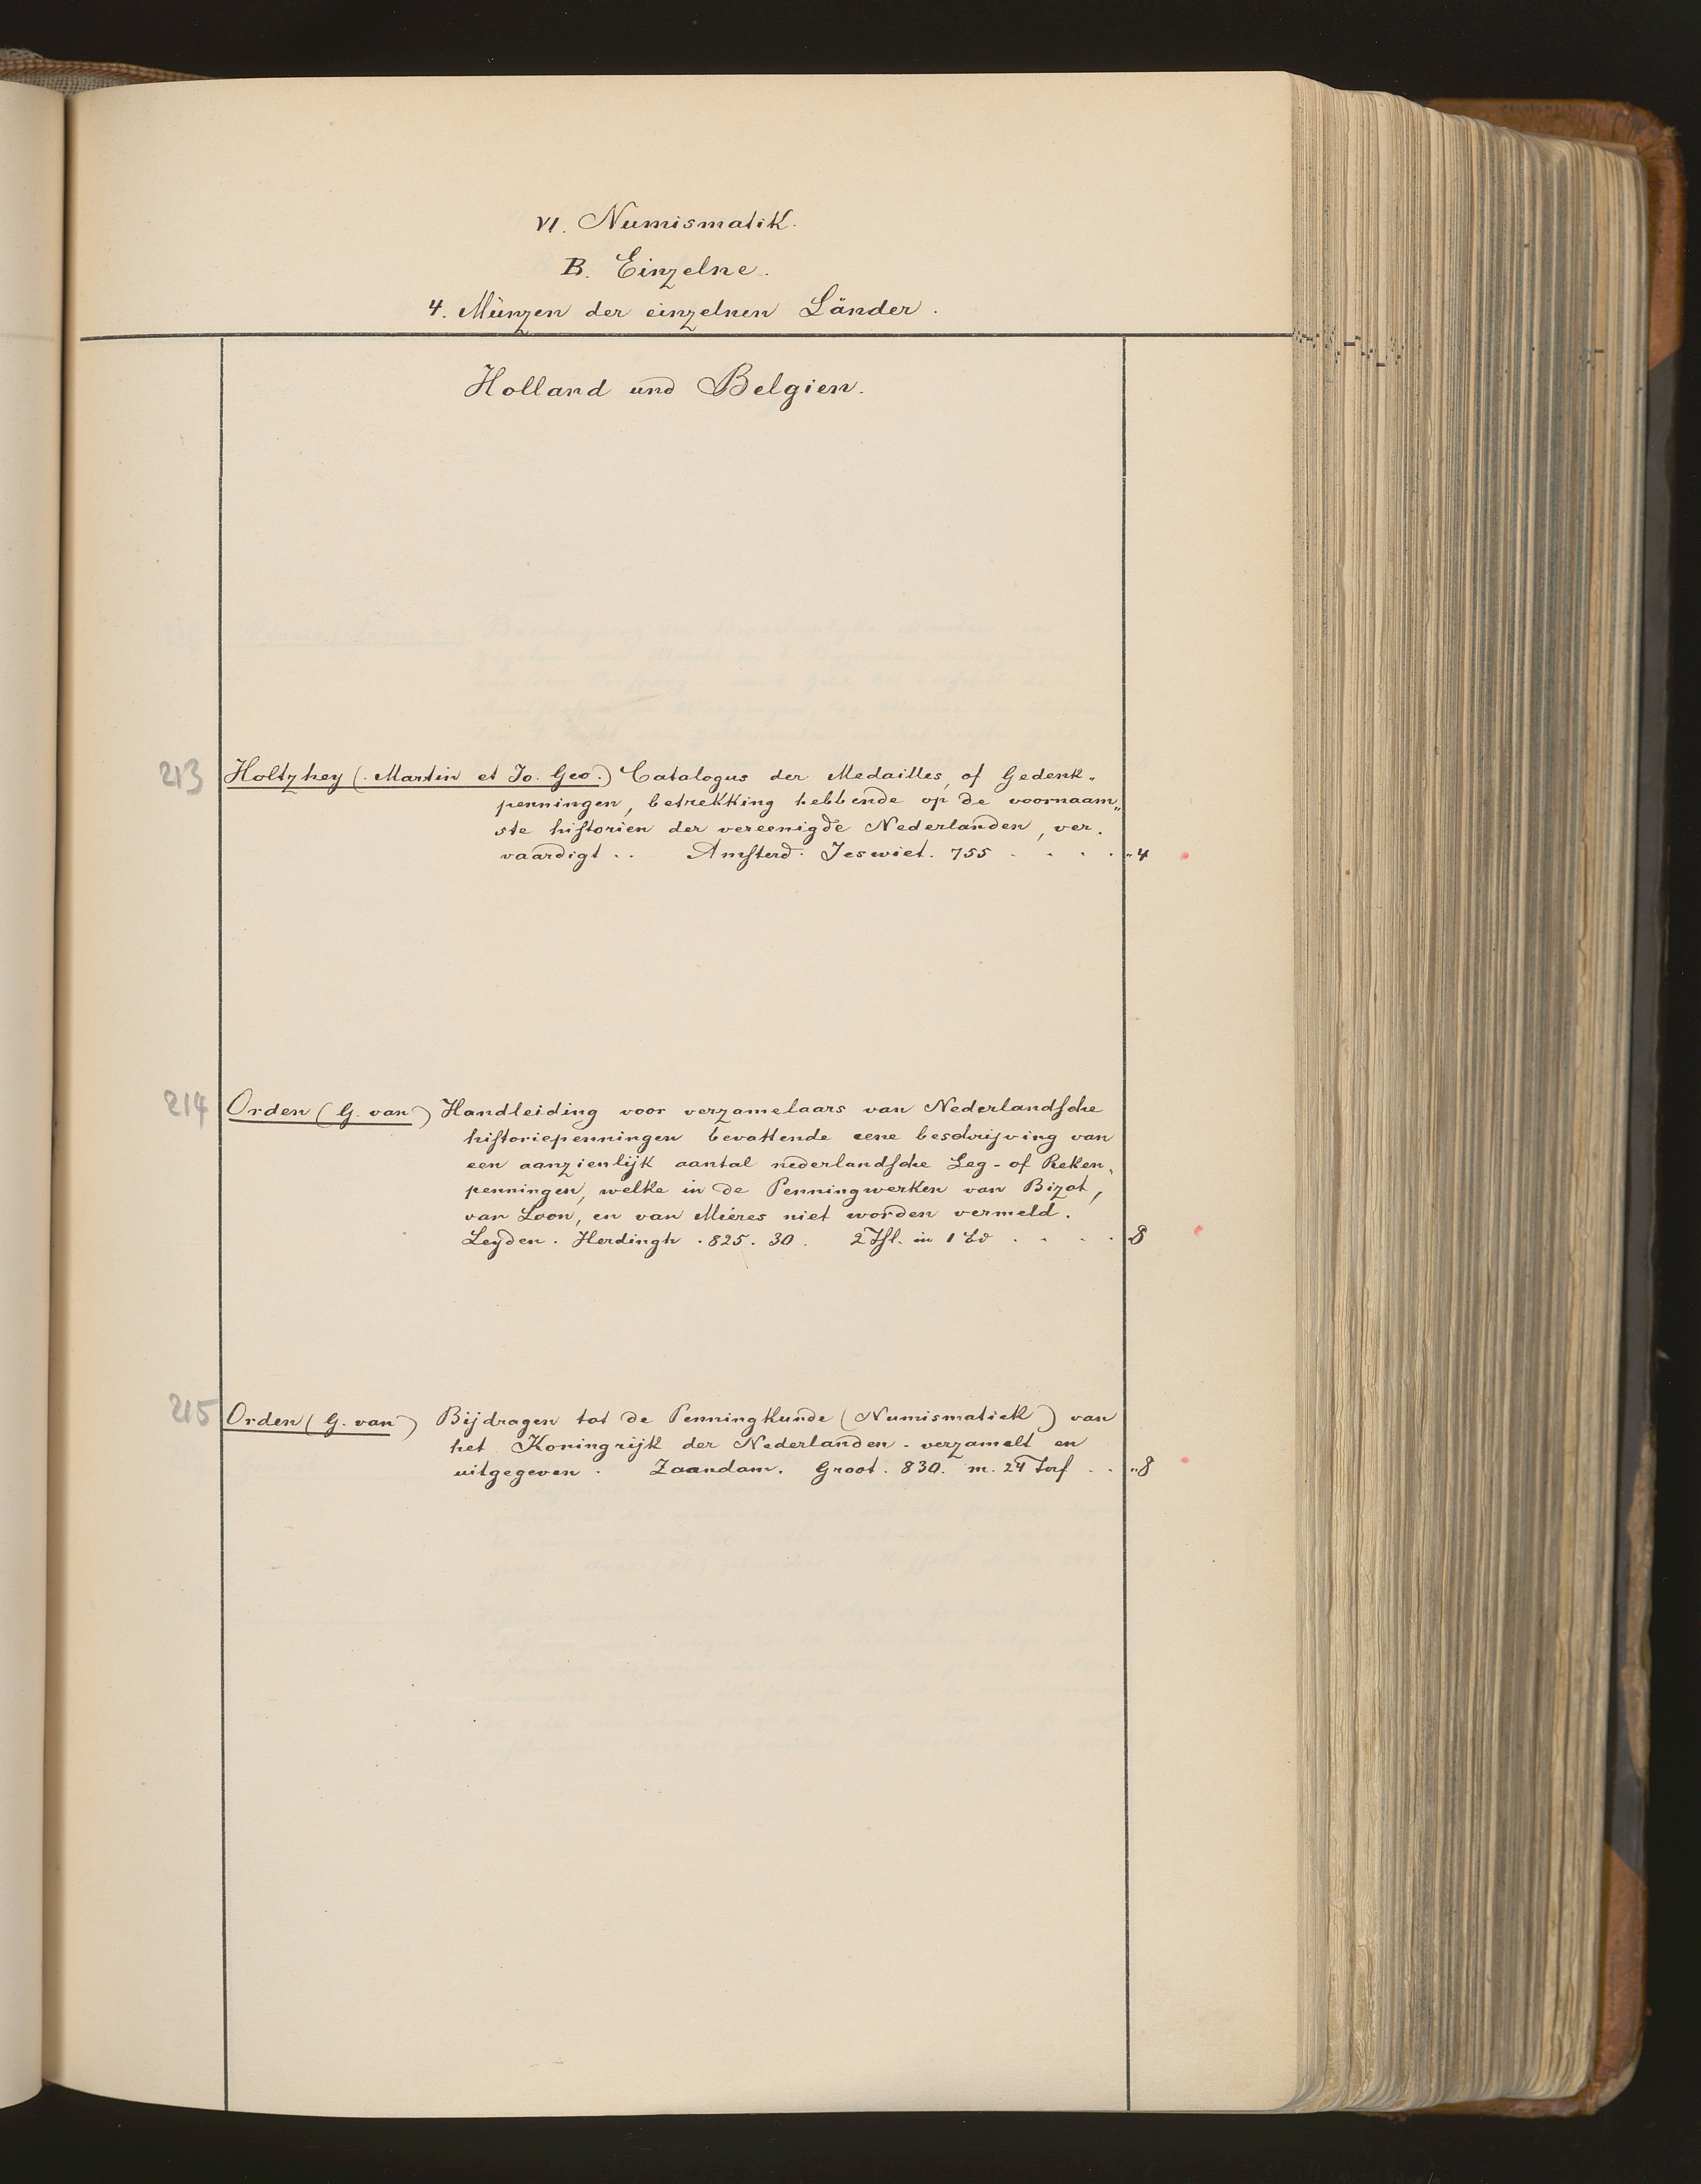 VI. Numismatik.
B. Einzelne.
4. Münzen der einzelnen Länder.
Holland und Belgien.
213 Holtzhey (. Martin et Jo. Geo.) Catalogus der Medailles, of Gedenk„
penningen, betrekking hebbende op de voornaam„
ste historien der vereenigde Nederlanden, ver.
vaardigt .. Amsterd. Jeswiet. 755 . . . . „4
214 Orden (G. van) Handleiding voor verzamelaars van Nederlandsche
historiepenningen bevattende eene beschrijving van
een aanzienlijk aantal nederlandsche Leg- of Reken„
penningen, welke in de Penningwerken van Bizot,
van Loon, en van Miéres niet worden vermeld.
Leyden. Herdingh. 825. 30. 2 Thl. in 1 Bd . . . . 8
215 Orden (G. van) Bijdragen tot de Penningkunde (Numismatiek) van
het Koningrijk der Nederlanden - verzamelt en
uitgegeven. Zaandam. Groot. 830. m. 24 Taf . . „8